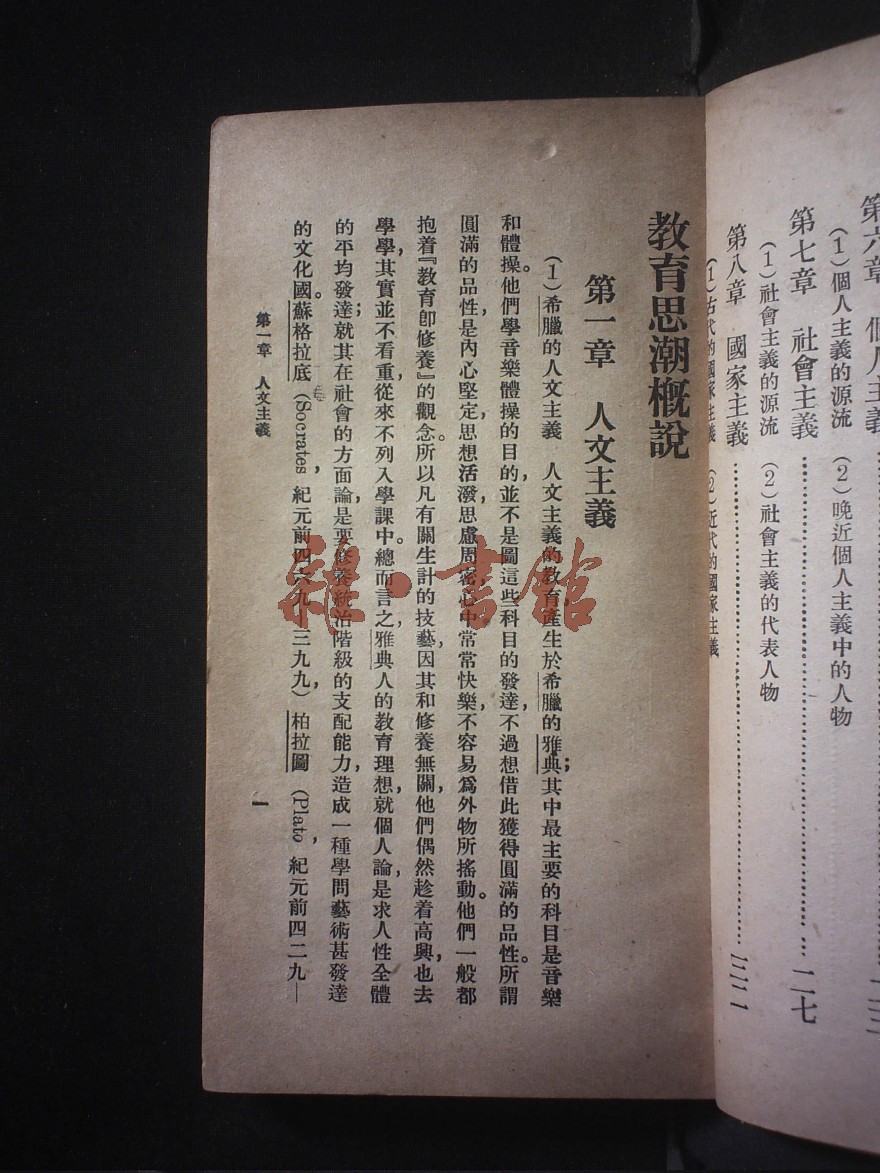 第六章 個人主義
(1)個人主義的源流 (2)晚近個人主義中的人物
第七章 社會主義……一二七
(1)社會主義的源流 (2)社會主義的代表人物
第八章 國家主義
(1)古代的國家主義 (2)近代的國家主義
教育思潮概說
第一章 人文主義
(1)希臘的人文主義 人文主義的教育,產生於希臘的雅典;其中最主要的科目是音樂
和體操。他們學音樂體操的目的,並不是圖這些科目的發達,不過想借此獲得圓滿的品性。所謂
圓滿的品性,是內心堅定,思想活潑,思慮周密,心中常常快樂,不容易爲外物所搖動。他們一般都
抱着『教育卽修養』的觀念。所以凡有關生計的技藝,因其和修養無關,他們偶然趁着高興,也去
學學,其實並不看重,從來不列入學課中。總而言之,雅典人的教育理想,就個人論,是求人性全體
的平均發達;就其在社會的方面論,是要修養統治階級的支配能力,造成一種學問藝術甚發達
的文化國。蘇格拉底(Socrates, 紀元前四六九—三九九),柏拉圖(Plato, 紀元前四二九—
第一章 人文主義
一
雜·書館